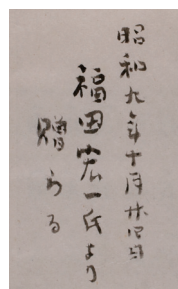 昭和九年十月廿四日
福田宏一氏より
贈らる